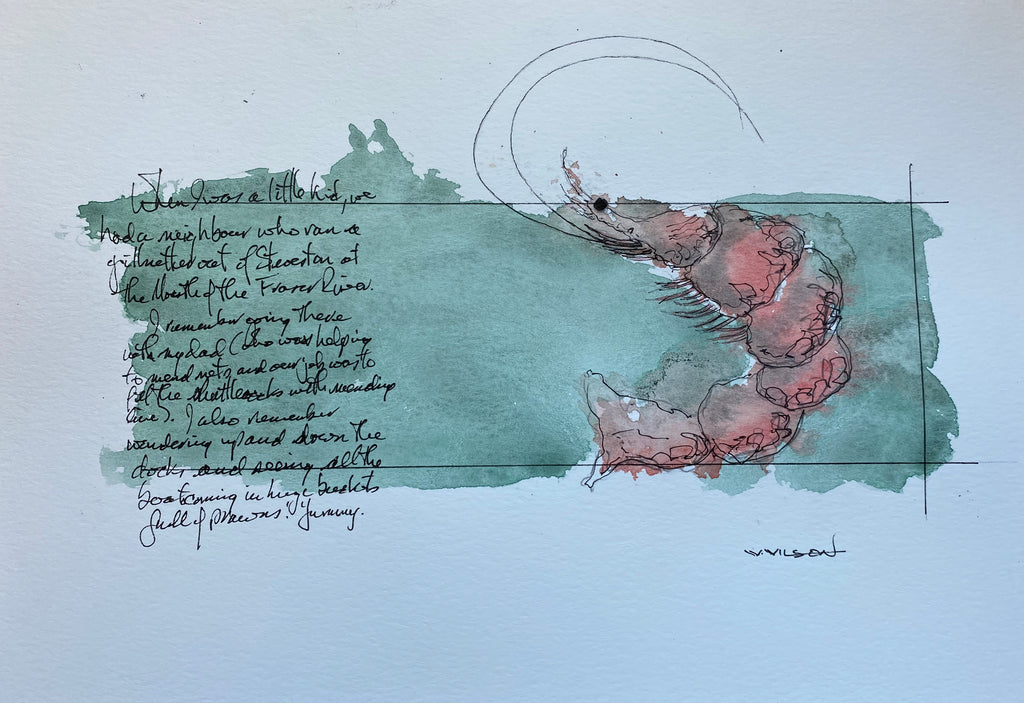 When I was a little kid, we
had a neighbour who ran a
gillnetter out of Steveston at
the Mouth of the Fraser River.
I remember going there
with my dad (who was helping
to mend nets and our job was to
fill the shuttlecocks with mending
line). I also remember
wandering up and down the
docks and seeing all the
boats coming in huge buckets
full of prawns. Yummy.
W.WILSON